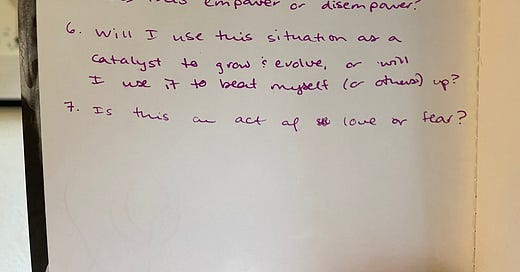 empower or disempower?
6. Will I use this situation as a
catalyst to grow & evolve, or will
I use it to beat myself (or others) up?
7. Is this an act of love or fear?